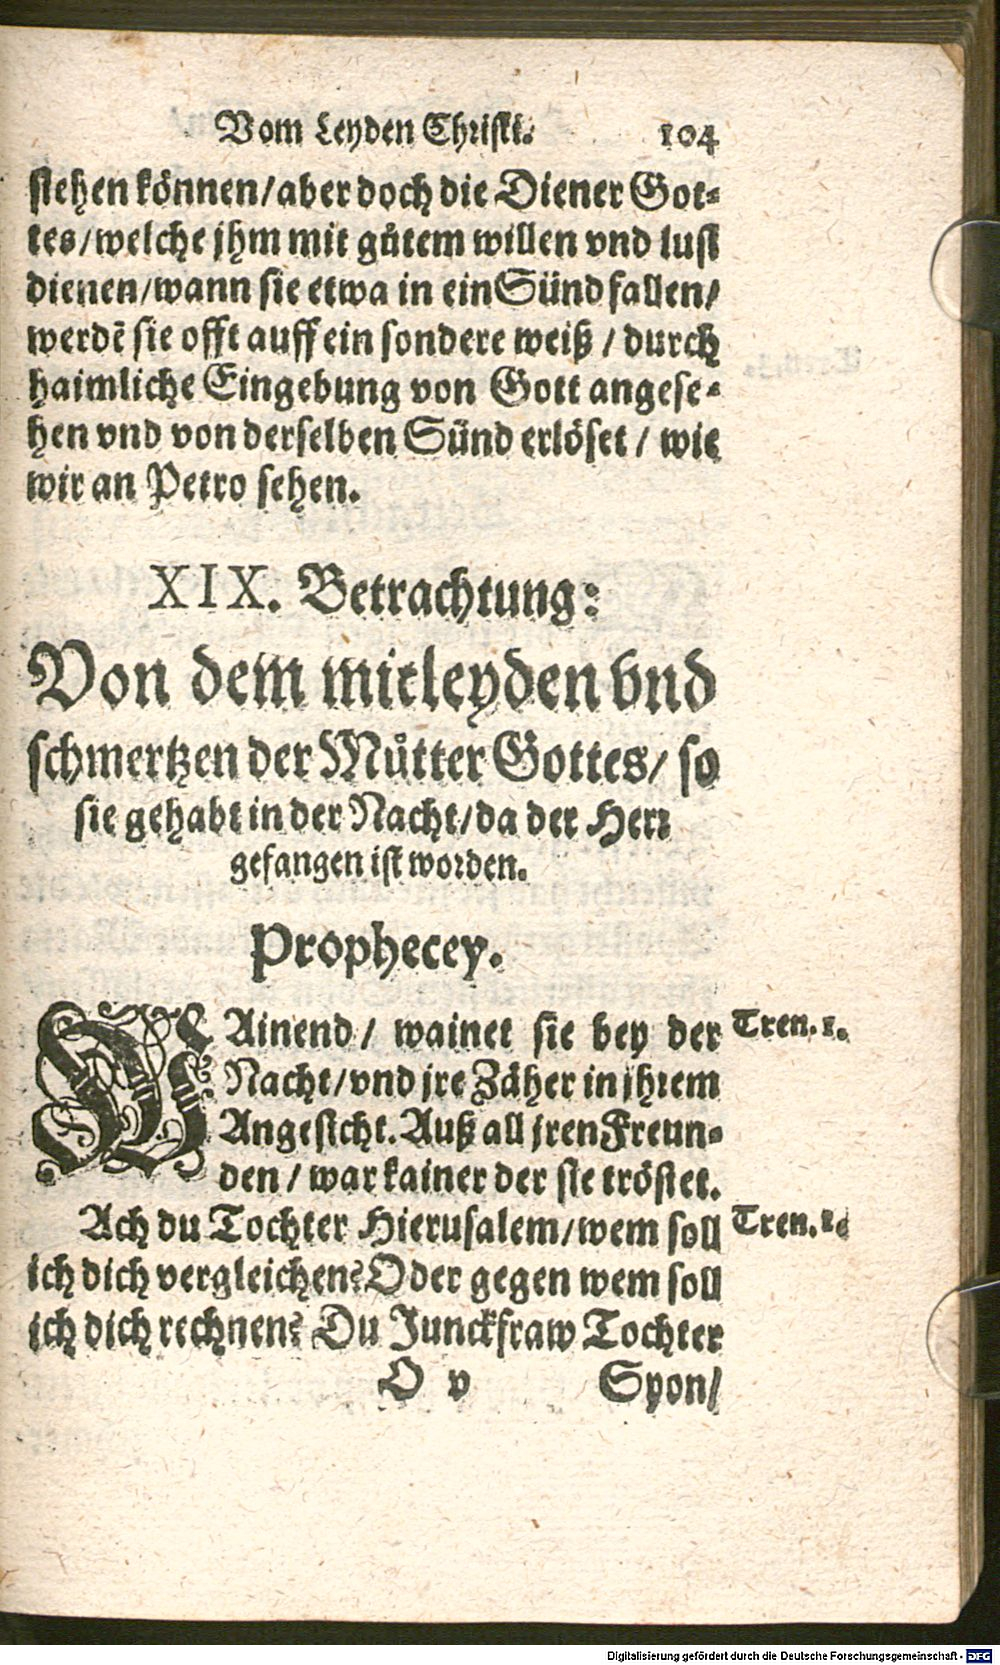 Vom Leyden Christi. 104
stehen können/aber doch die Diener Got⸗
tes/welche jhm mit gůtem willen vnd lust
dienen/wann sie etwa in ein Sünd fallen/
werdē sie offt auff ein sondere weiß / durch
haimliche Eingebung von Gott angese⸗
hen vnd von derselben Sünd erlöset / wie
wir an Petro sehen.
XIX. Betrachtung:
Von dem mitleyden vnd
schmertzen der Můtter Gottes/ so
sie gehabt in der Nacht/da der Herr
gefangen ist worden.
Prophecey.
WAinend / wainet sie bey der Tren. 1.
Nacht/vnd jre Zäher in jhrem
Angesicht. Auß all jren Freun⸗
den / war kainer der sie tröstet.
Ach du Tochter Hierusalem/wem soll Tren. 1.
ich dich vergleichen? Oder gegen wem soll
ich dich rechnen? Du Junckfraw Tochter
O v Syon/
Digitalisierung gefördert durch die Deutsche Forschungsgemeinschaft - DFG